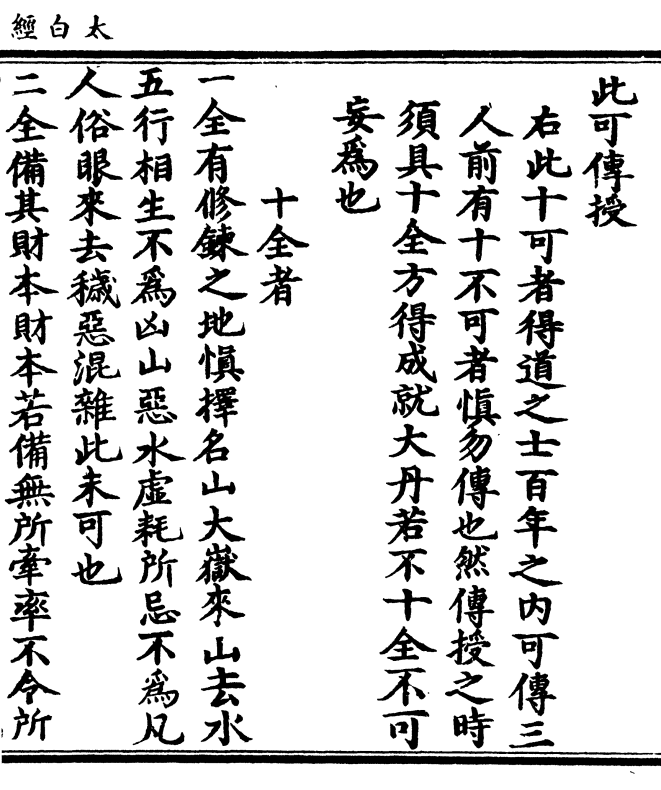 太白經
此可傳授
右此十可者得道之士百年之內可傳三
人前有十不可者慎勿傳也然傳授之時
須具十全方得成就大丹若不十全不可
妄為也
十全者
一全有修鍊之地慎擇名山大嶽來山去水
五行相生不為凶山惡水虛耗所忌不為凡
人俗眼來去穢惡混雜此未可也
二全備其財本財本若備無所牽率不令所